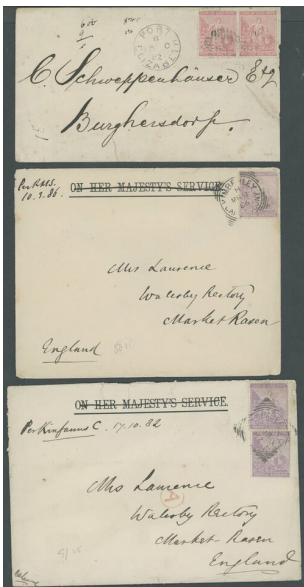 PORT ELIZABETH
82
C. Schweppenhäuser Esq
Burghersdorp.
Per RMS.
10.3.86.
ON HER MAJESTY'S SERVICE.
KIMBERLEY
Mrs Laurence
Walesby Rectory
Market Rasen
England
ON HER MAJESTY'S SERVICE.
Per Kinfauns C. 17.10.82
A
Mrs Laurence
Walesby Rectory
Market-Rasen
England